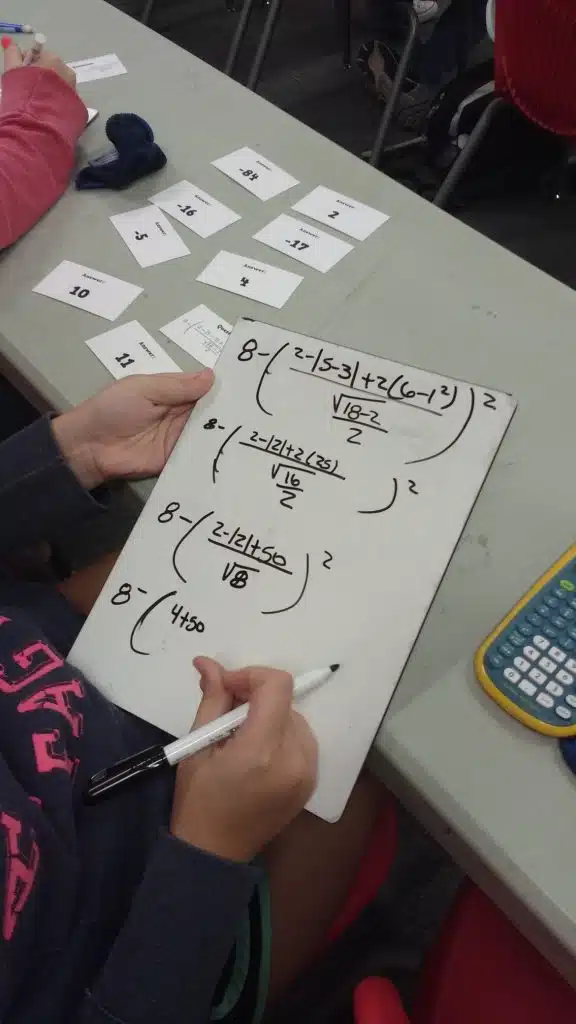 Answer:
-84
Answer:
2
Answer:
-16
Answer:
-17
Answer:
-5
Answer:
4
Answer:
10
Answer:
11
8-((2-|5-3|+2(6-1²))/(√(18-2)/2))²
8-((2-|2|+2(25))/(√16/2))²
8-((2-|2|+50)/√8)²
8-(4+50